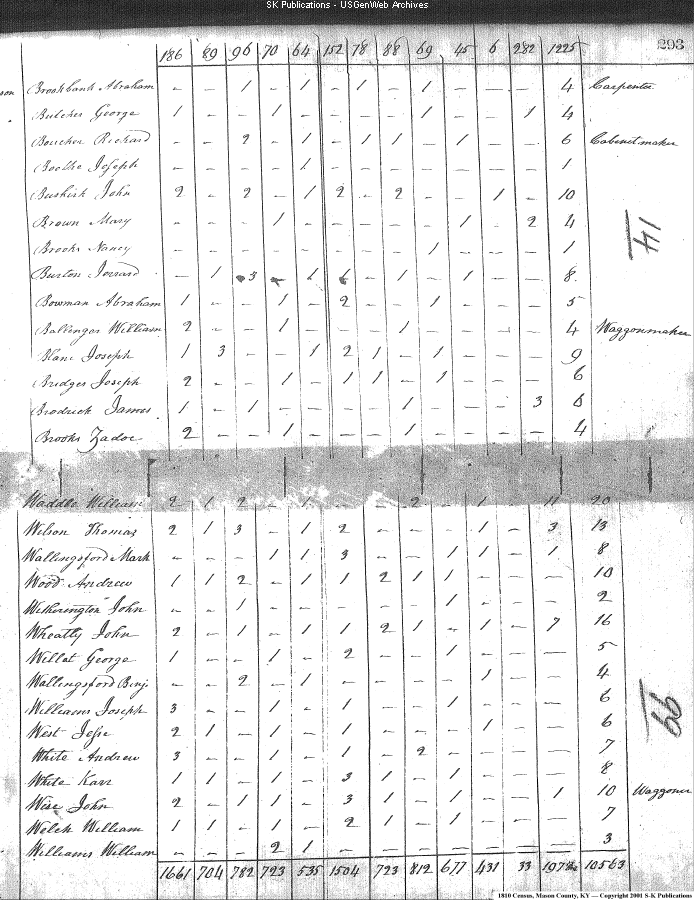 SK Publications - USGenWeb Archives
186 89 96 70 64 152 78 88 69 45 6 282 1225 293
son Brookbank Abraham – – 1 – 1 – 1 – 1 – – – 4 Carpenter
Butcher George 1 – – 1 – – – – 1 – – 1 4
Boucher Richard – – 2 – 1 – 1 1 – 1 – – 6 Cabinetmaker
Joseph – – – – 1 – – – – – – – 1
Buskirk John 2 – 2 – 1 2 – 2 – – 1 – 10
Brown Mary – – – 1 – – – – – 1 – 2 4
Brooks Nancy – – – – – – – – 1 – – – 1
Burton – 1 3 – 1 1 – 1 – 1 – – 8
Bowman Abraham 1 – – 1 – 2 – – 1 – – – 5
Ballengar William 2 – – 1 – – – 1 – – – – 4 Waggonmaker
Blanc Joseph 1 3 – – 1 2 1 – 1 – – – 9
Bridges Joseph 2 – – 1 – 1 1 – 1 – – – 6
Brodrick James 1 – 1 – – – – 1 – – – 3 6
Brooks Zadoc 2 – – 1 – – – 1 – – – – 4
14
Waddle William 2 1 2 – 1 – – 2 – 1 – 11 20
Wilson Thomas 2 1 3 – 1 2 – – – 1 – 3 13
Wallingsford Mark – – – 1 1 3 – – 1 1 – 1 8
Wood Andrew 1 1 2 – 1 1 2 1 1 – – – 10
Witherington John – – 1 – – – – – 1 – – – 2
Wheatly John 2 – 1 – 1 1 2 1 – 1 – 7 16
Willet George 1 – – 1 – 2 – – 1 – – – 5
Wallingsford Benj. – – 2 – 1 – – – – 1 – – 4
Williams Joseph 3 – – 1 – 1 – – 1 – – – 6
West Jesse 2 1 – 1 – 1 – – – 1 – – 6
White Andrew 3 – – 1 – 1 – 2 – – – – 7
White Karr 1 1 – 1 – 3 1 – 1 – – – 8
Wise John 2 – 1 1 – 3 1 – 1 – – 1 10 Waggoner
Welch William 1 1 – 1 – 2 1 – 1 – – – 7
Williams William – – – 2 1 – – – – – – – 3
99
1661 704 782 723 535 1504 723 812 677 431 33 10563
1810 Census, Mason County, KY — Copyright 2001 S-K Publications